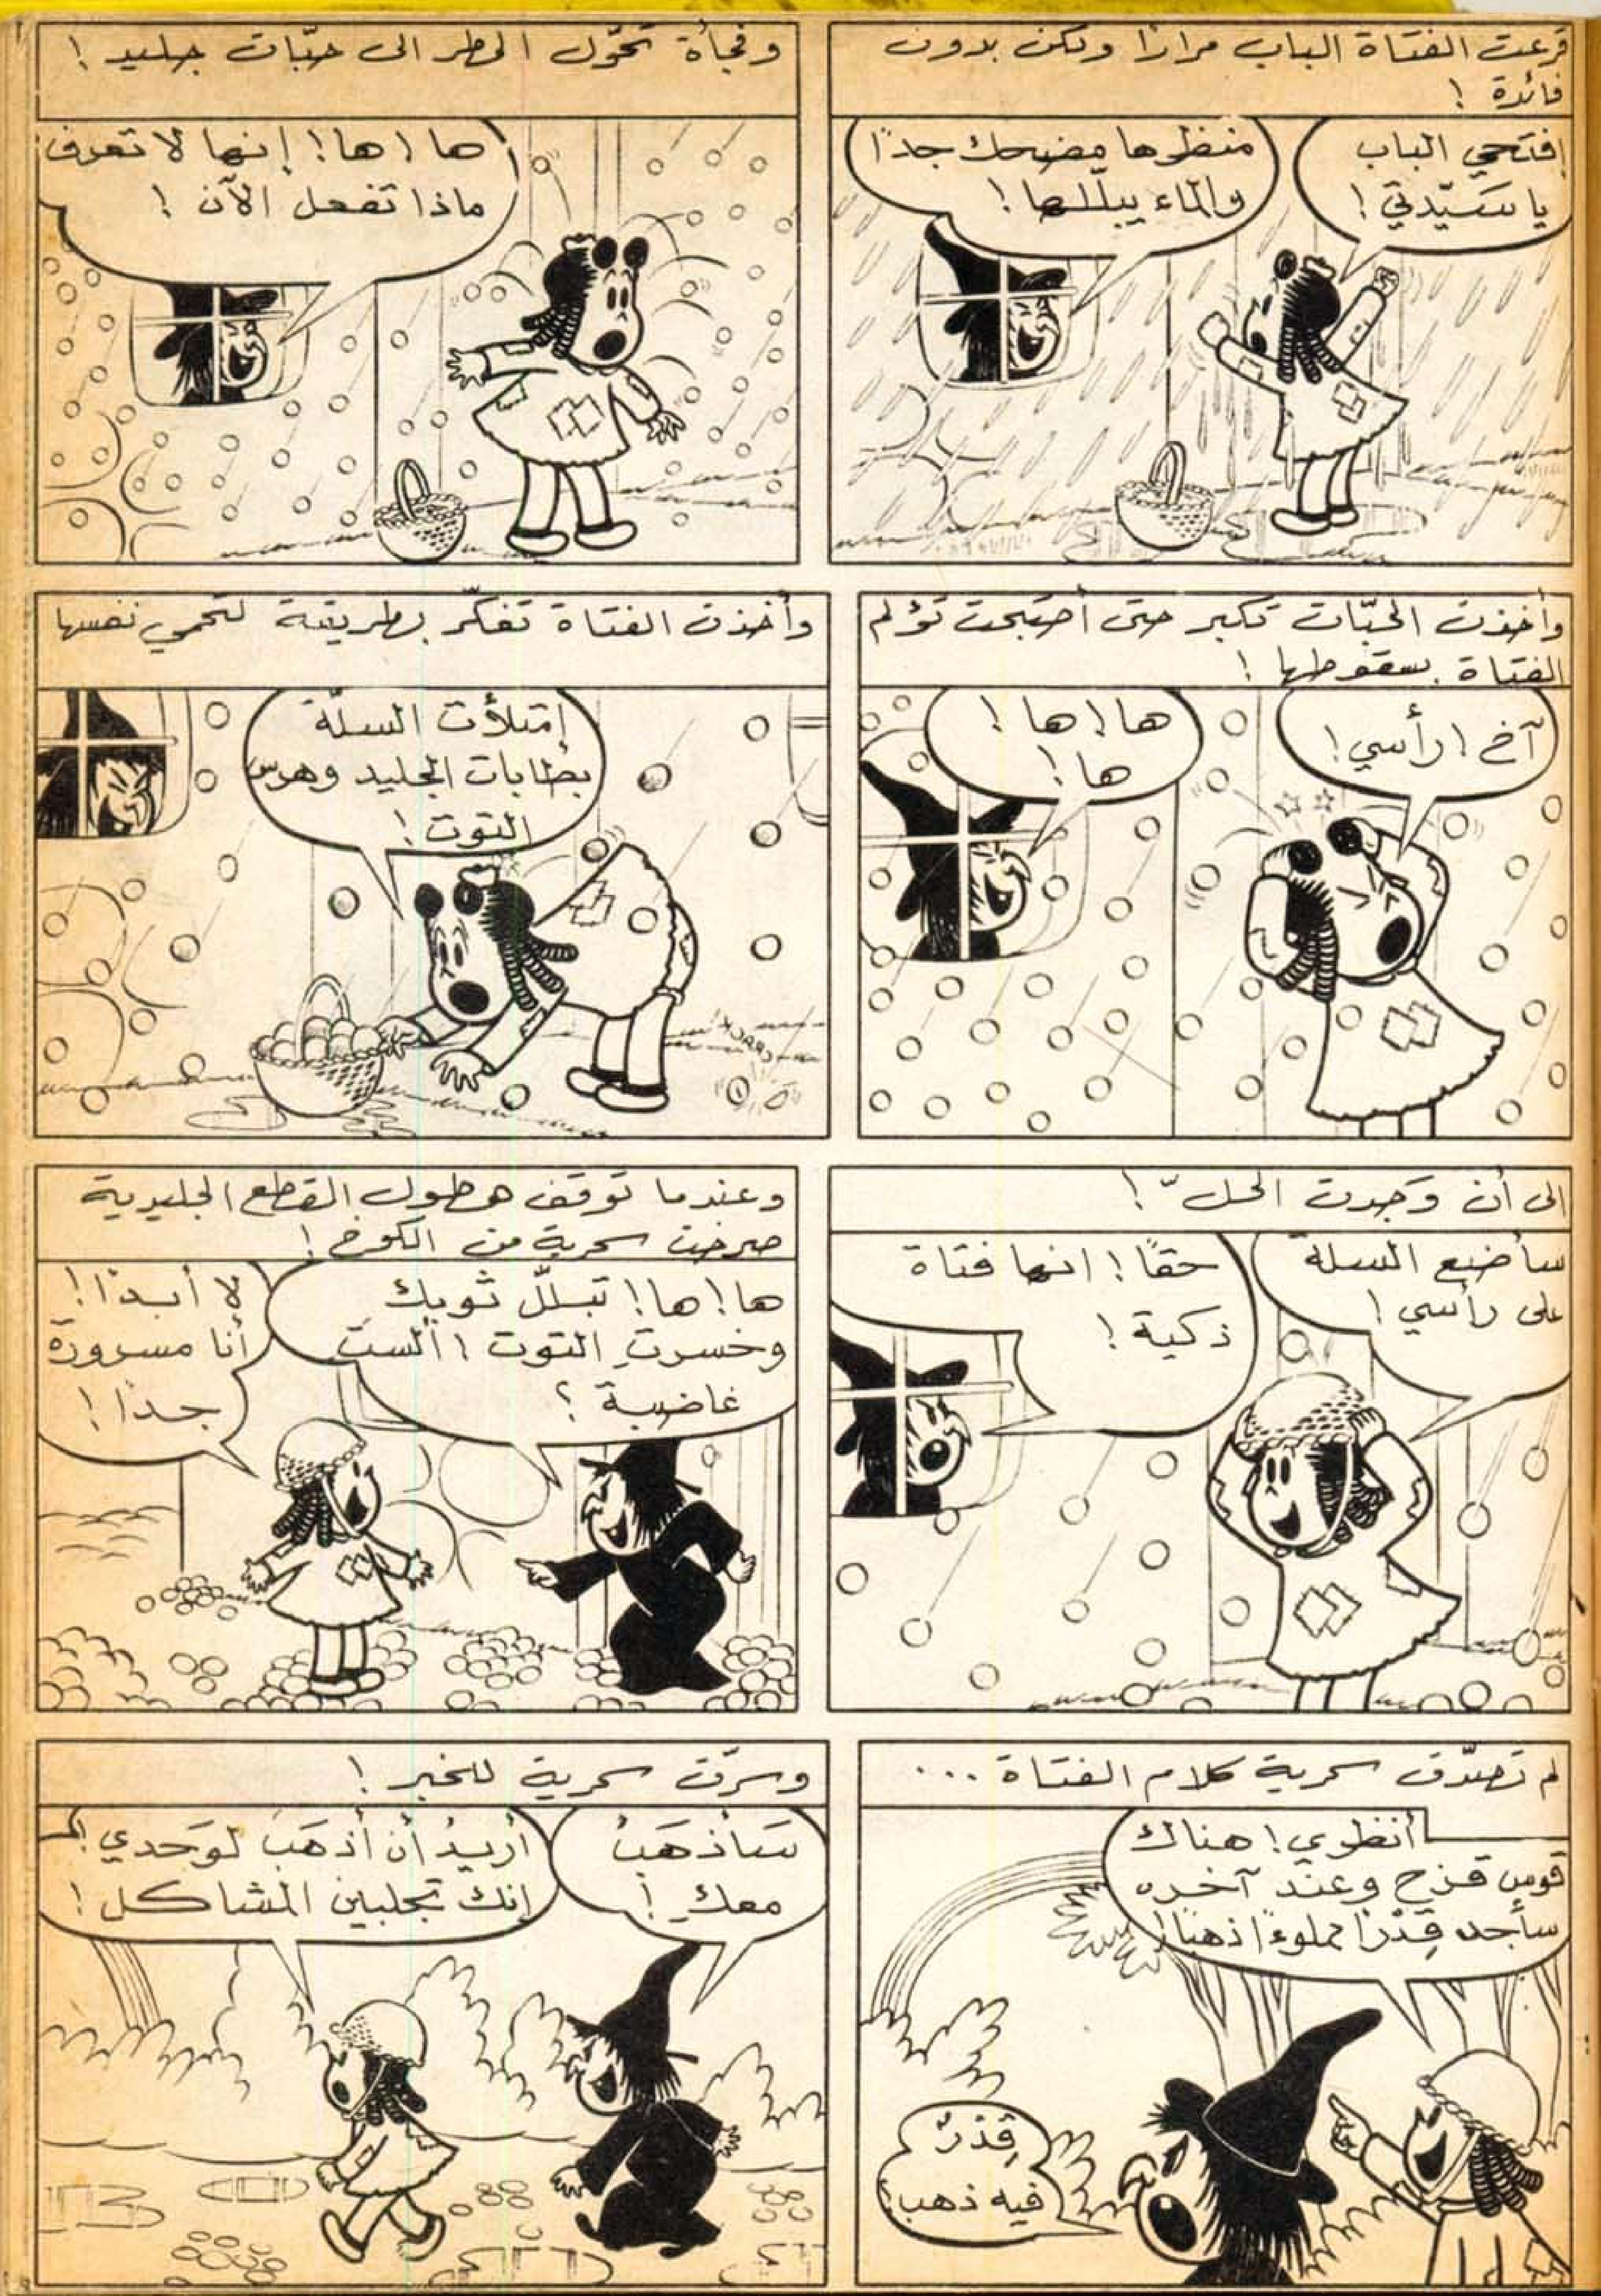 قرعت الفتاة الباب مرارًا ولكن بدون
فائدة !
إفتحي الباب
يا سَيّدتي !
منظرها مضحك جدًا
والماء يبلّلها !
وفجأة تحوّل المطر الى حبّات جليد !
ها ! ها ! إنها لا تعرف
ماذا تفعل الآن !
وأخذت الحبّات تكبر حتى أصبحت تؤلم
الفتاة بسقوطها !
آخ ! رأسي !
ها ! ها !
ها !
وأخذت الفتاة تفكّر بطريقة لتحمي نفسها
إمتلأت السلّة
بطابات الجليد وهرس
التوت !
CRACK!
الى أن وَجدت الحلّ !
سأضع السلة
على رأسي !
حقًا ! انها فتاة
ذكية !
وعندما توقف هطول القطع الجليدية
صرخت سحرية من الكوخ !
ها ! ها ! تبلّل ثوبك
وخسرتِ التوت ! ألستَ
غاضبة ؟
لا أبدًا !
أنا مسرورة
جدًا !
لم تصدّق سحرية كلام الفتاة ...
أنظري ! هناك
قوس قزح وعند آخره
سأجد قِدْرًا مملوءًا ذهبًا !
قِدْرٌ
فيه ذهب !
وسرّت سحرية للخبر !
سَأذهَبُ
معكِ !
أريدُ أن أذهَبَ لوَحدي !
إنك تجلبين المشاكل !